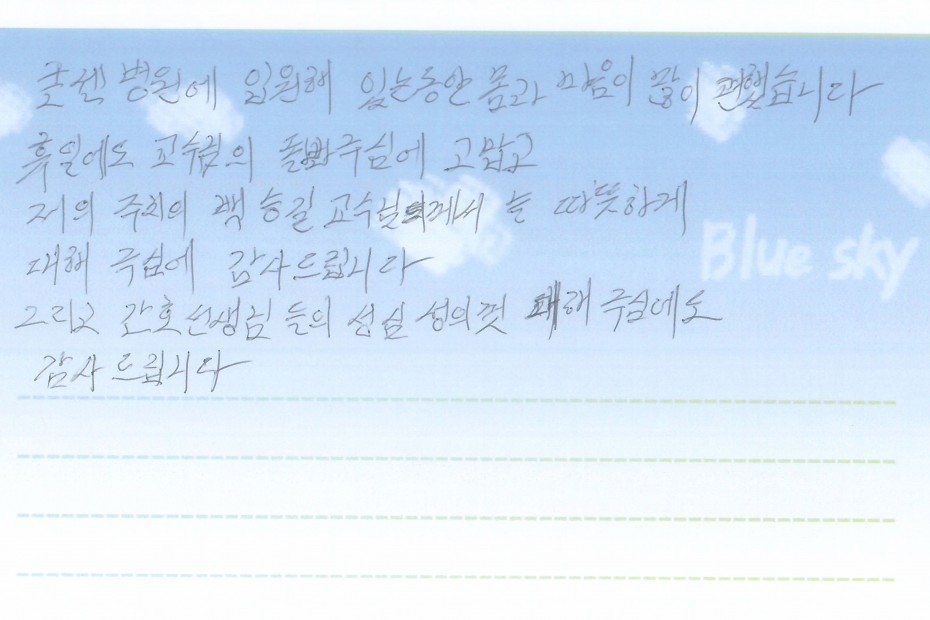 굿센 병원에 입원해 있는동안 몸과 마음이 많이 편했습니다
휴일에도 교수님의 돌봐주심에 고맙고
저의 주치의 백승길 교수님께서는 따뜻하게
대해 주심에 감사드립니다
그리고 간호선생님들의 성심 성의껏 대해 주심에도
감사드립니다
Blue sky